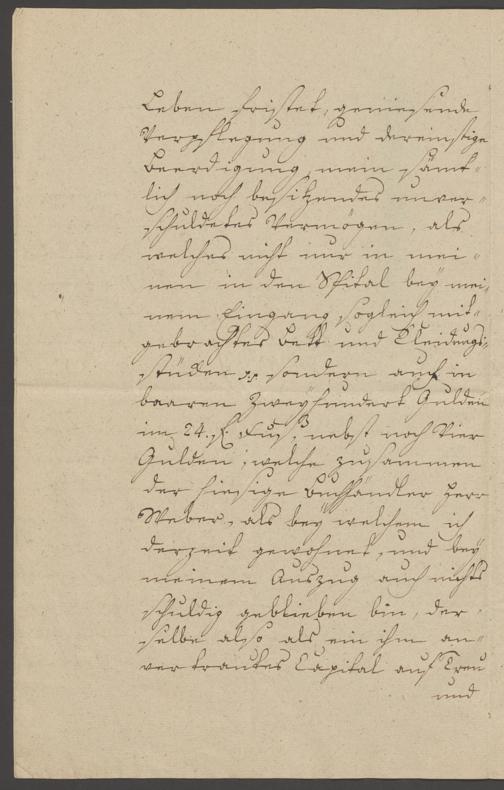 Leben fristet, geniesende
Verpflegung und dereinstige
Beerdigung, mein sämt-
lich noch besitzendes unver-
schuldetes Vermögen, als
welches nicht nur in mei-
nen in den Spital bey mei-
nem Eingang sogleich mit-
gebrachtes Bett und Kleidungs-
stücken pp sondern auch in
baaren Zweyhundert Gulden
im 24. f. Fus, nebst noch Vier
Gulden, welche zusammen
der hiesige Buchhändler Herr
Weber, als bey welchem ich
derzeit gewohnet, und bey
meinem Auszug auch nichts
schuldig geblieben bin, der-
selbe also als ein ihm an-
vertrautes Capital auf Treu
und